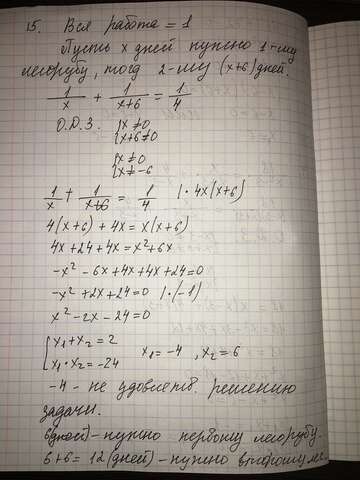 15. Вся работа = 1
Пусть x дней нужно 1-му
лесорубу, тогд 2-му (x+6) дней.
1/x + 1/(x+6) = 1/4
О.Д.З. {x ≠ 0
{x+6 ≠ 0
{x ≠ 0
{x ≠ -6
1/x + 1/(x+6) = 1/4 | · 4x(x+6)
4(x+6) + 4x = x(x+6)
4x + 24 + 4x = x² + 6x
-x² - 6x + 4x + 4x + 24 = 0
-x² + 2x + 24 = 0 | · (-1)
x² - 2x - 24 = 0
{x₁ + x₂ = 2
{x₁ · x₂ = -24 x₁ = -4 , x₂ = 6
-4 - не удовлетв. решению
задачи.
6(дней) - нужно первому лесорубу.
6+6 = 12 (дней) - нужно второму ле.